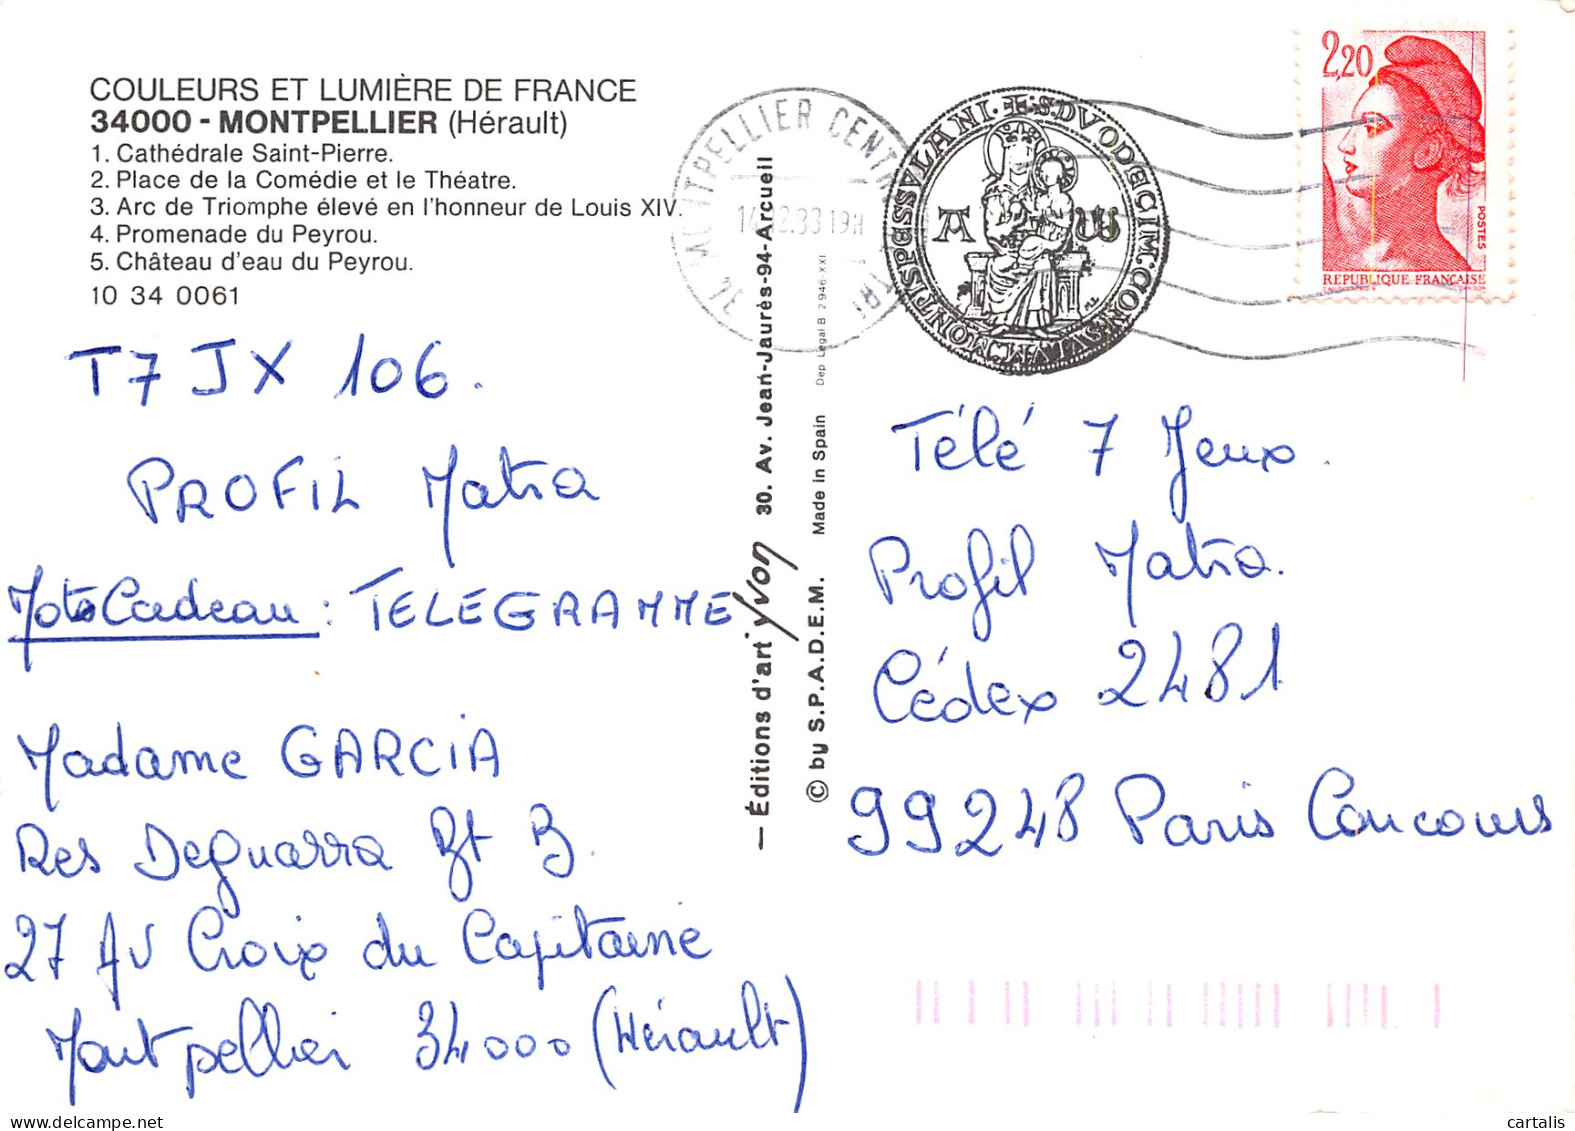 COULEURS ET LUMIÈRE DE FRANCE
34000 - MONTPELLIER (Hérault)
1. Cathédrale Saint-Pierre.
2. Place de la Comédie et le Théatre.
3. Arc de Triomphe élevé en l'honneur de Louis XIV.
4. Promenade du Peyrou.
5. Château d'eau du Peyrou.
10 34 0061
T7 JX 106.
PROFIL Matra
Moto Cadeau : TELEGRAMME
Madame GARCIA
Res Deguarra Bt B.
27 Av Croix du Capitaine
Montpellier 34000 (Hérault)
— Éditions d'art yvon 30. Av. Jean-Jaurès-94-Arcueil
© by S.P.A.D.E.M. Made in Spain Dep Légal B 2 946-XXI
34 MONTPELLIER CENTRE
19H
A W
2,20
POSTES
REPUBLIQUE FRANÇAISE
Télé 7 Jeux.
Profil Matra.
Cédex 2481
99248 Paris Concours
cartalis
delcampe.net